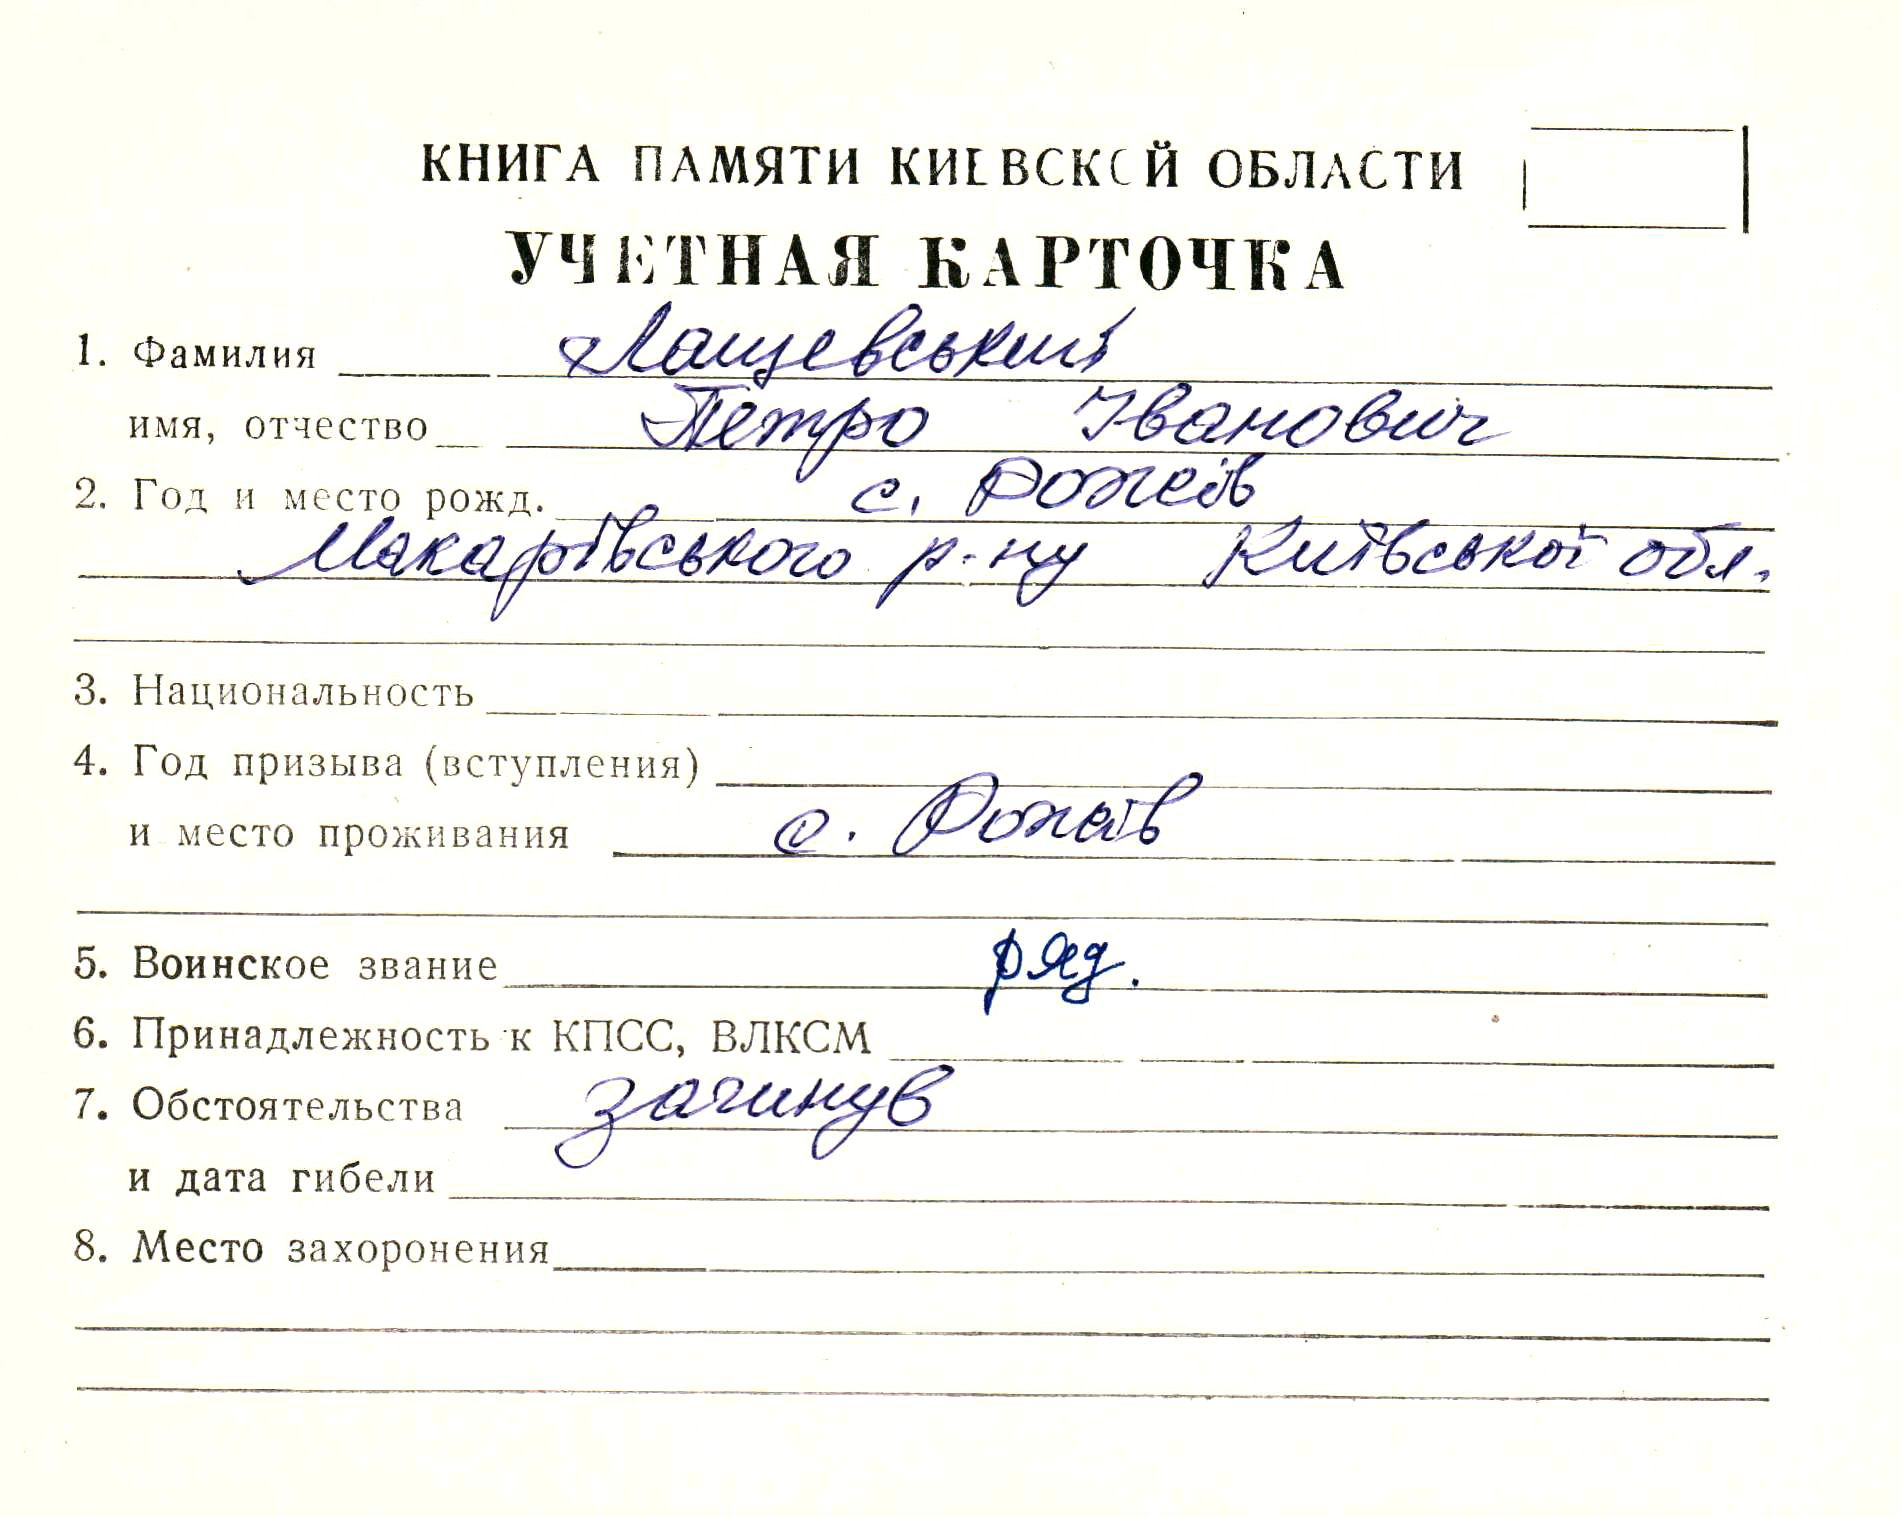 КНИГА ПАМЯТИ КИЕВСКОЙ ОБЛАСТИ
УЧЕТНАЯ КАРТОЧКА
1. Фамилия Лащевський
имя, отчество Петро Іванович
2. Год и место рожд. с. Рожів
Макарівського р-ну Київської обл.
3. Национальность
4. Год призыва (вступления)
и место проживания с. Рожів
5. Воинское звание ряд.
6. Принадлежность к КПСС, ВЛКСМ
7. Обстоятельства загинув
и дата гибели
8. Место захоронения